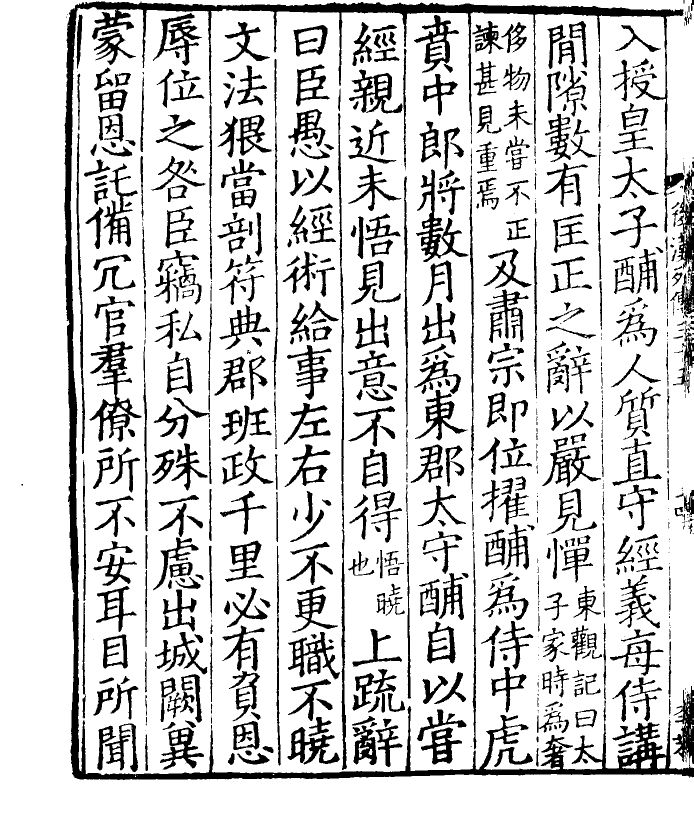 入授皇太子酺爲人質直守經義每侍講
閒隙數有匡正之辭以嚴見憚東觀記曰太子家時爲奢
侈物未嘗不正諫甚見重焉及肅宗即位擢酺爲侍中虎
賁中郎將數月出爲東郡太守酺自以嘗
經親近未悟見出意不自得悟曉也上疏辭
曰臣愚以經術給事左右少不更職不曉
文法猥當剖符典郡班政千里必有負恩
辱位之咎臣竊私自分殊不慮出城闕兾
蒙留恩託備冗官羣僚所不安耳目所聞